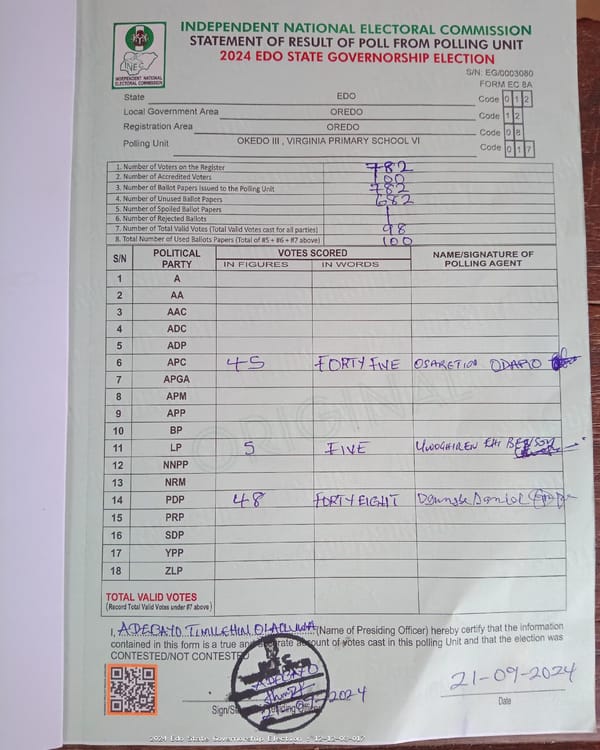 INDEPENDENT NATIONAL ELECTORAL COMMISSION
STATEMENT OF RESULT OF POLL FROM POLLING UNIT
2024 EDO STATE GOVERNORSHIP ELECTION
INEC
INDEPENDENT NATIONAL
ELECTORAL COMMISSION
S/N: EG/0003080
FORM EC 8A
State EDO Code 0 1 2
Local Government Area OREDO Code 1 2
Registration Area OREDO Code 0 8
Polling Unit OKEDO III , VIRGINIA PRIMARY SCHOOL VI Code 0 1 7
1. Number of Voters on the Register 782
2. Number of Accredited Voters 100
3. Number of Ballot Papers Issued to the Polling Unit 782
4. Number of Unused Ballot Papers 682
5. Number of Spoiled Ballot Papers 1
6. Number of Rejected Ballots 1
7. Number of Total Valid Votes (Total Valid Votes cast for all parties) 98
8. Total Number of Used Ballots Papers (Total of #5 + #6 + #7 above) 100
S/N POLITICAL PARTY VOTES SCORED NAME/SIGNATURE OF POLLING AGENT
IN FIGURES IN WORDS
1 A
2 AA
3 AAC
4 ADC
5 ADP
6 APC 45 FORTY FIVE OSARETION ODARO
7 APGA
8 APM
9 APP
10 BP
11 LP 5 FIVE EHI BENSON
12 NNPP
13 NRM
14 PDP 48 FORTY EIGHT Daniel
15 PRP
16 SDP
17 YPP
18 ZLP
ORIGINAL
TOTAL VALID VOTES
(Record Total Valid Votes under #7 above)
I, ADEBAYO TIMILEHIN OLAOLUWA (Name of Presiding Officer) hereby certify that the information
contained in this form is a true and accurate account of votes cast in this polling Unit and that the election was
CONTESTED/NOT CONTESTED
ADEBAYO
2024
21-09-2024
Date
2024 Edo State Governorship Election - 12-12-08-017